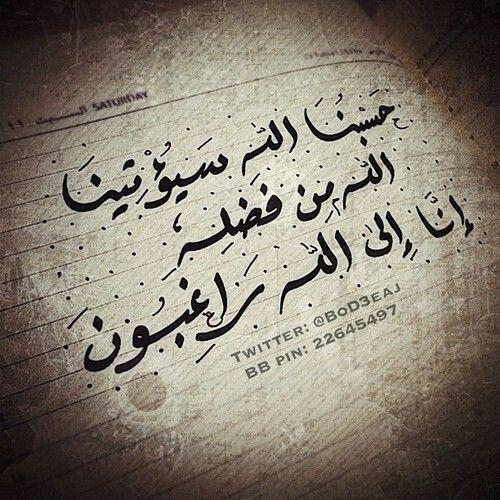 السبت ١١ SATURDAY
حَسْبُنَا اللّه سَيُؤْتِينَا
اللّه مِن فَضْلِهِ
إِنَّا إِلَى اللّه رَاغِبُونَ
TWITTER: @BOD3EAJ
BB PIN: 22645497